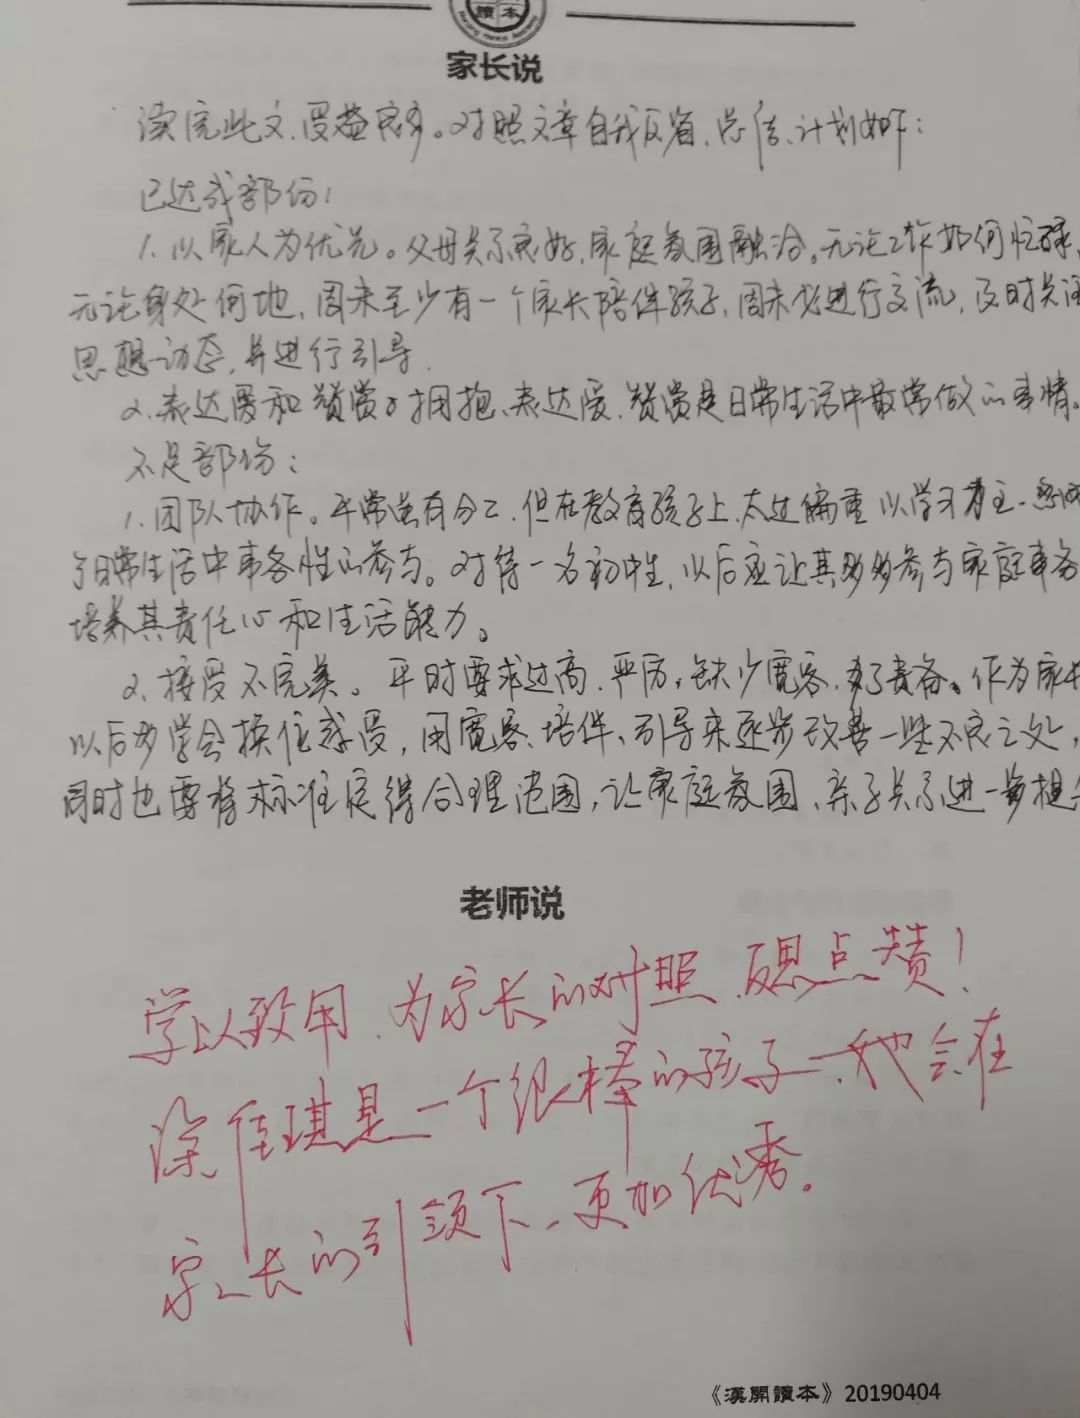 讀本
家长说
读完此文,受益良多。对照文章自我反省,总结、计划如下:
已达成部份:
1. 以家人为优先。父母关系良好,家庭氛围融洽。无论工作如何忙碌,
无论身处何地,周末至少有一个家长陪伴孩子,周末必进行交流,及时关注
思想动态,并进行引导.
2. 表达爱和赞赏。拥抱、表达爱、赞赏是日常生活中最常做的事情。
不足部份:
1. 团队协作。平常虽有分工,但在教育孩子上,太过偏重以学习为主,忽略
了日常生活中事务性的参与。对待一名初中生,以后应让其多多参与家庭事务
培养其责任心和生活能力。
2. 接受不完美。平时要求过高、严厉,缺少宽容,多了责备。作为家长
以后多学会换位感受,用宽容、培伴、引导来逐步改善一些不良之处,
同时也要将标准定得合理范围,让家庭氛围、亲子关系进一步提
老师说
学以致用,为家长的对照、反思点赞!
佳琪是一个很棒的孩子,她会在
家长的引领下,更加优秀。
《漢開讀本》20190404